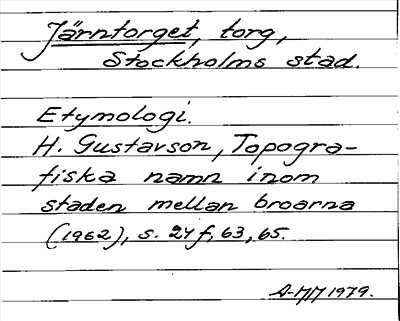 Järntorget, torg,
Stockholms stad.
Etymologi.
H. Gustavson, Topogra-
fiska namn inom
staden mellan broarna
(1962), s. 24 f, 63, 65.
A-MM 1979.